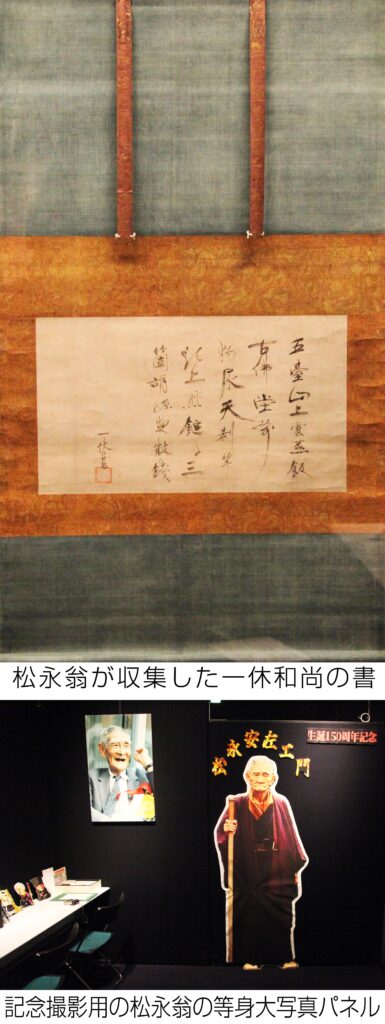 五臺山上雲蒸飯
古佛堂前
狗尿天刹竿
頭上煎鎚子三
箇胡孫夜簸錢
一休書
松永翁が収集した一休和尚の書
生誕150周年記念
松永安左エ門
記念撮影用の松永翁の等身大写真パネル